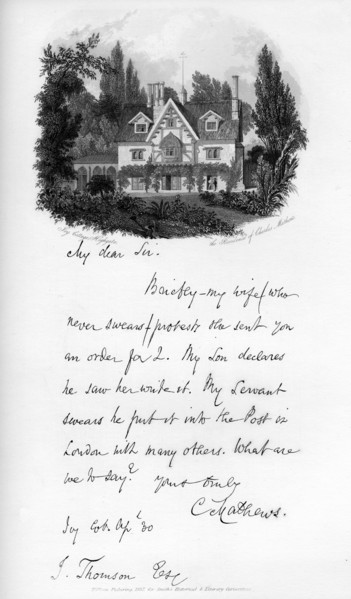 Ivy Cottage, Highgate
the Residence of Charles Mathews
My dear Sir.
Briefly—my wife (who
never swears) protests she sent you
an order for 2. My Son declares
he saw her write it. My Servant
swears he put it into the Post in
London with many others. What are
we to say?
yours truly
C Mathews.
Ivy Cot. Apl. 30
J. Thomson Esq